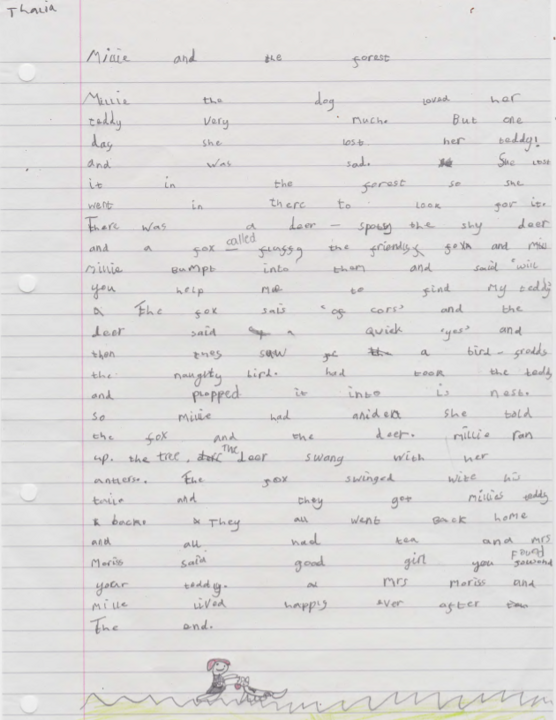 Thalia
Millie and the forest
Millie the dog loved her
teddy very much. But one
day she lost her teddy!
and was sad. She lose
it in the forest so she
went in there to look for it.
There was a deer - spotty the shy deer
and a fox called fluffy the friendly fox and
Millie Bumpt into them and said "will
you help me to find my teddy
The fox sais 'of cors' and the
deer said a quick 'yes' and
then they saw a bird - freddy
the naughty bird. had took the teddy
and plopped it into is nest.
so Millie had anidea she told
the fox and the deer. Millie ran
up. the tree. The deer swang with her
antlers. The fox swinged with his
taile and they get millies teddy
back. They all went Back home
and all had tea and mrs
Moriss said good girl you found
your teddy. Mrs Moriss and
Mille lived happly ever after
The end.